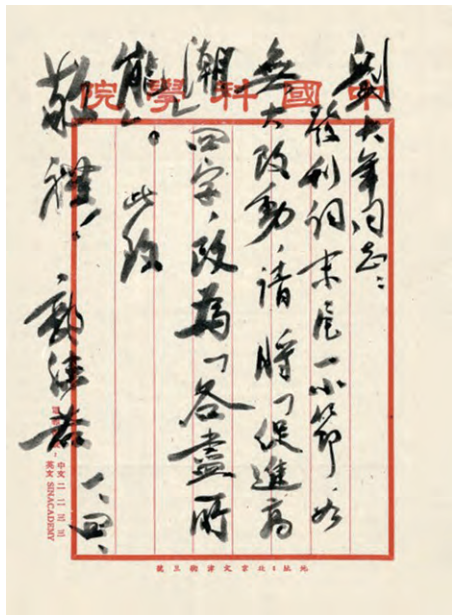 中國科學院
劉大年同志：
發刊詞末尾一小節，如
無大改動，請將「促進高
潮」四字，改為「各盡所
能」。此致
敬禮！
郭沫若
一、四、
中文
英文 SINACADEMY
地址：北京文津街三號